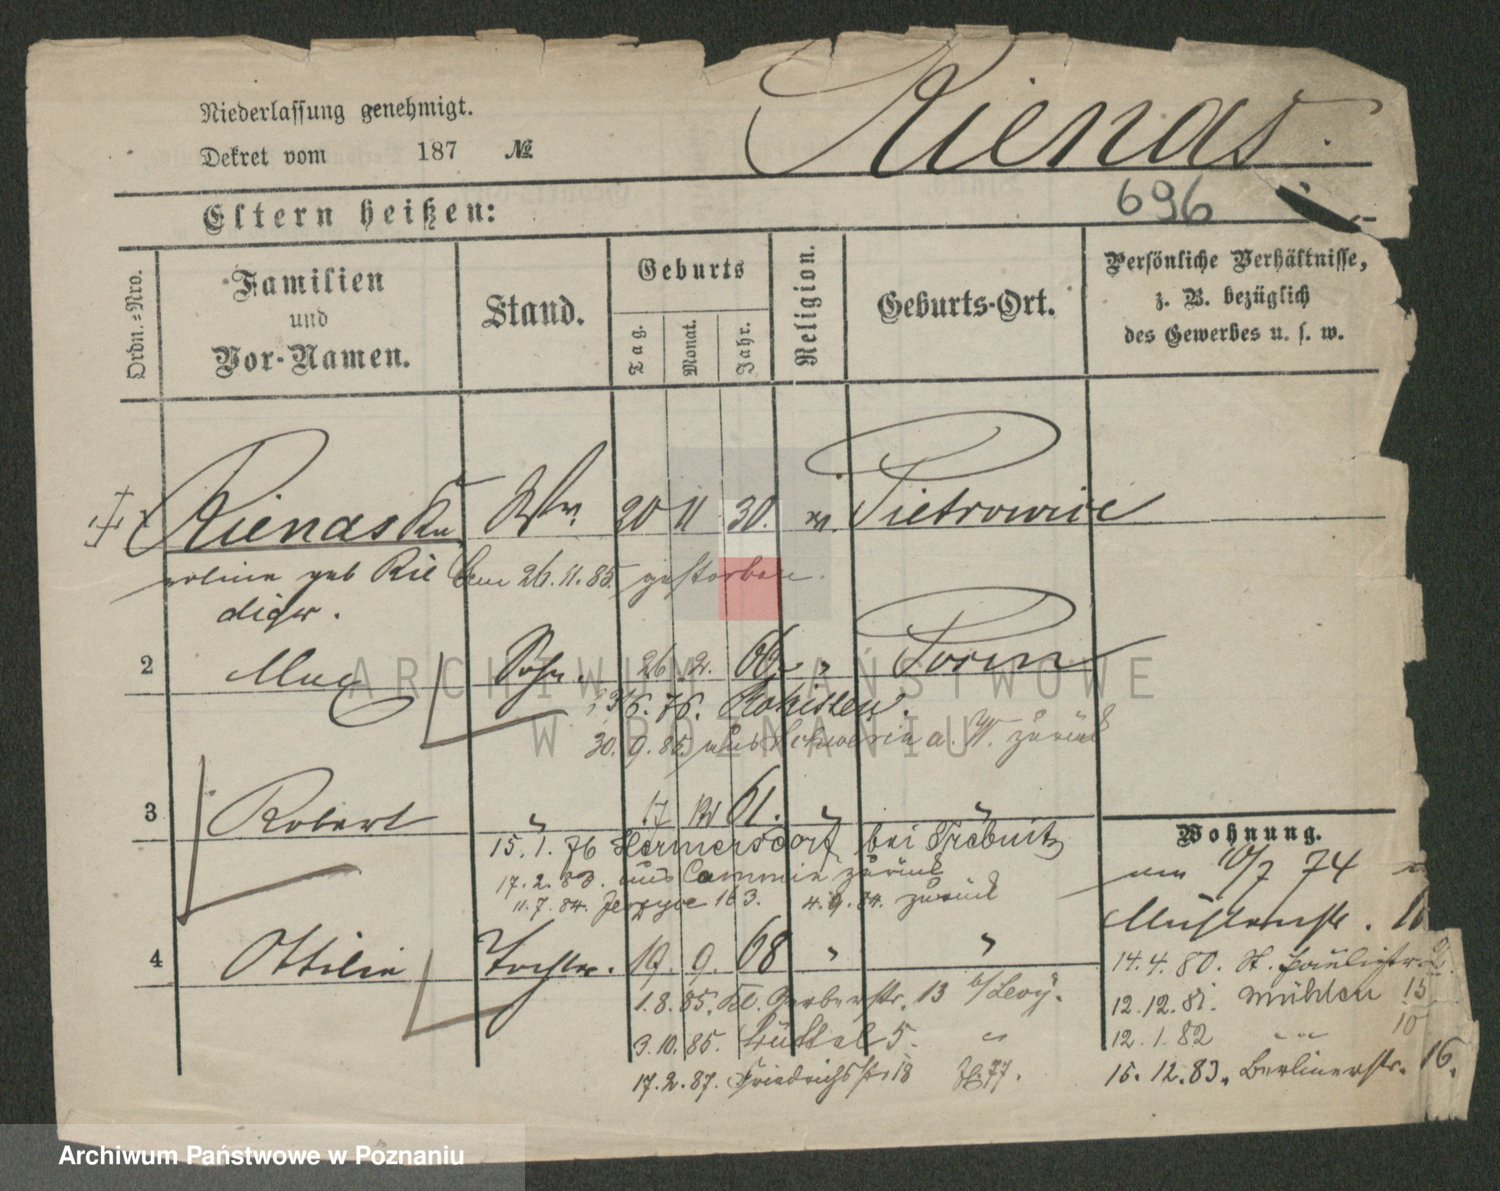 Niederlassung genehmigt.
Dekret vom 187 №
Rienas.
696
Eltern heißen:
Ordn.-Nro.
Familien
und
Vor-Namen.
Stand.
Geburts
Tag.
Monat.
Jahr.
Religion.
Geburts-Ort.
Persönliche Verhältnisse,
z. B. bezüglich
des Gewerbes u. s. w.
Rienas Ka Ww. 20 11 30. Pietrowice
roline geb Rie den 26.11.85. gestorben.
diger.
2 Max Sohn. 26. 2. 66. " Posen
76. Kokislew.
30. 9. 85. aus Schwerin a. W. zurück
3 Robert " 17 61. " "
15. 1. 76 Hermersdorf bei Trebnitz
17. 2. 83. aus Commin zurück
11. 7. 84. Jerzyce 163. 4. 9. 84. zurück
4 Ottilie Tochter. 19. 9. 68 " "
1. 8. 85. Kl. Gerberstr. 13 b/Levy.
3. 10. 85. 5. "
17. 2. 87. Friedrichsstr 18 77.
Wohnung.
10/7 74
Mühlenstr.
14. 4. 80. St.
12. 12. 81. Mühlen 15
12. 1. 82 " " 10
15. 12. 83. Berlinerstr. 16.
ARCHIWUM PAŃSTWOWE
W POZNANIU
Archiwum Państwowe w Poznaniu